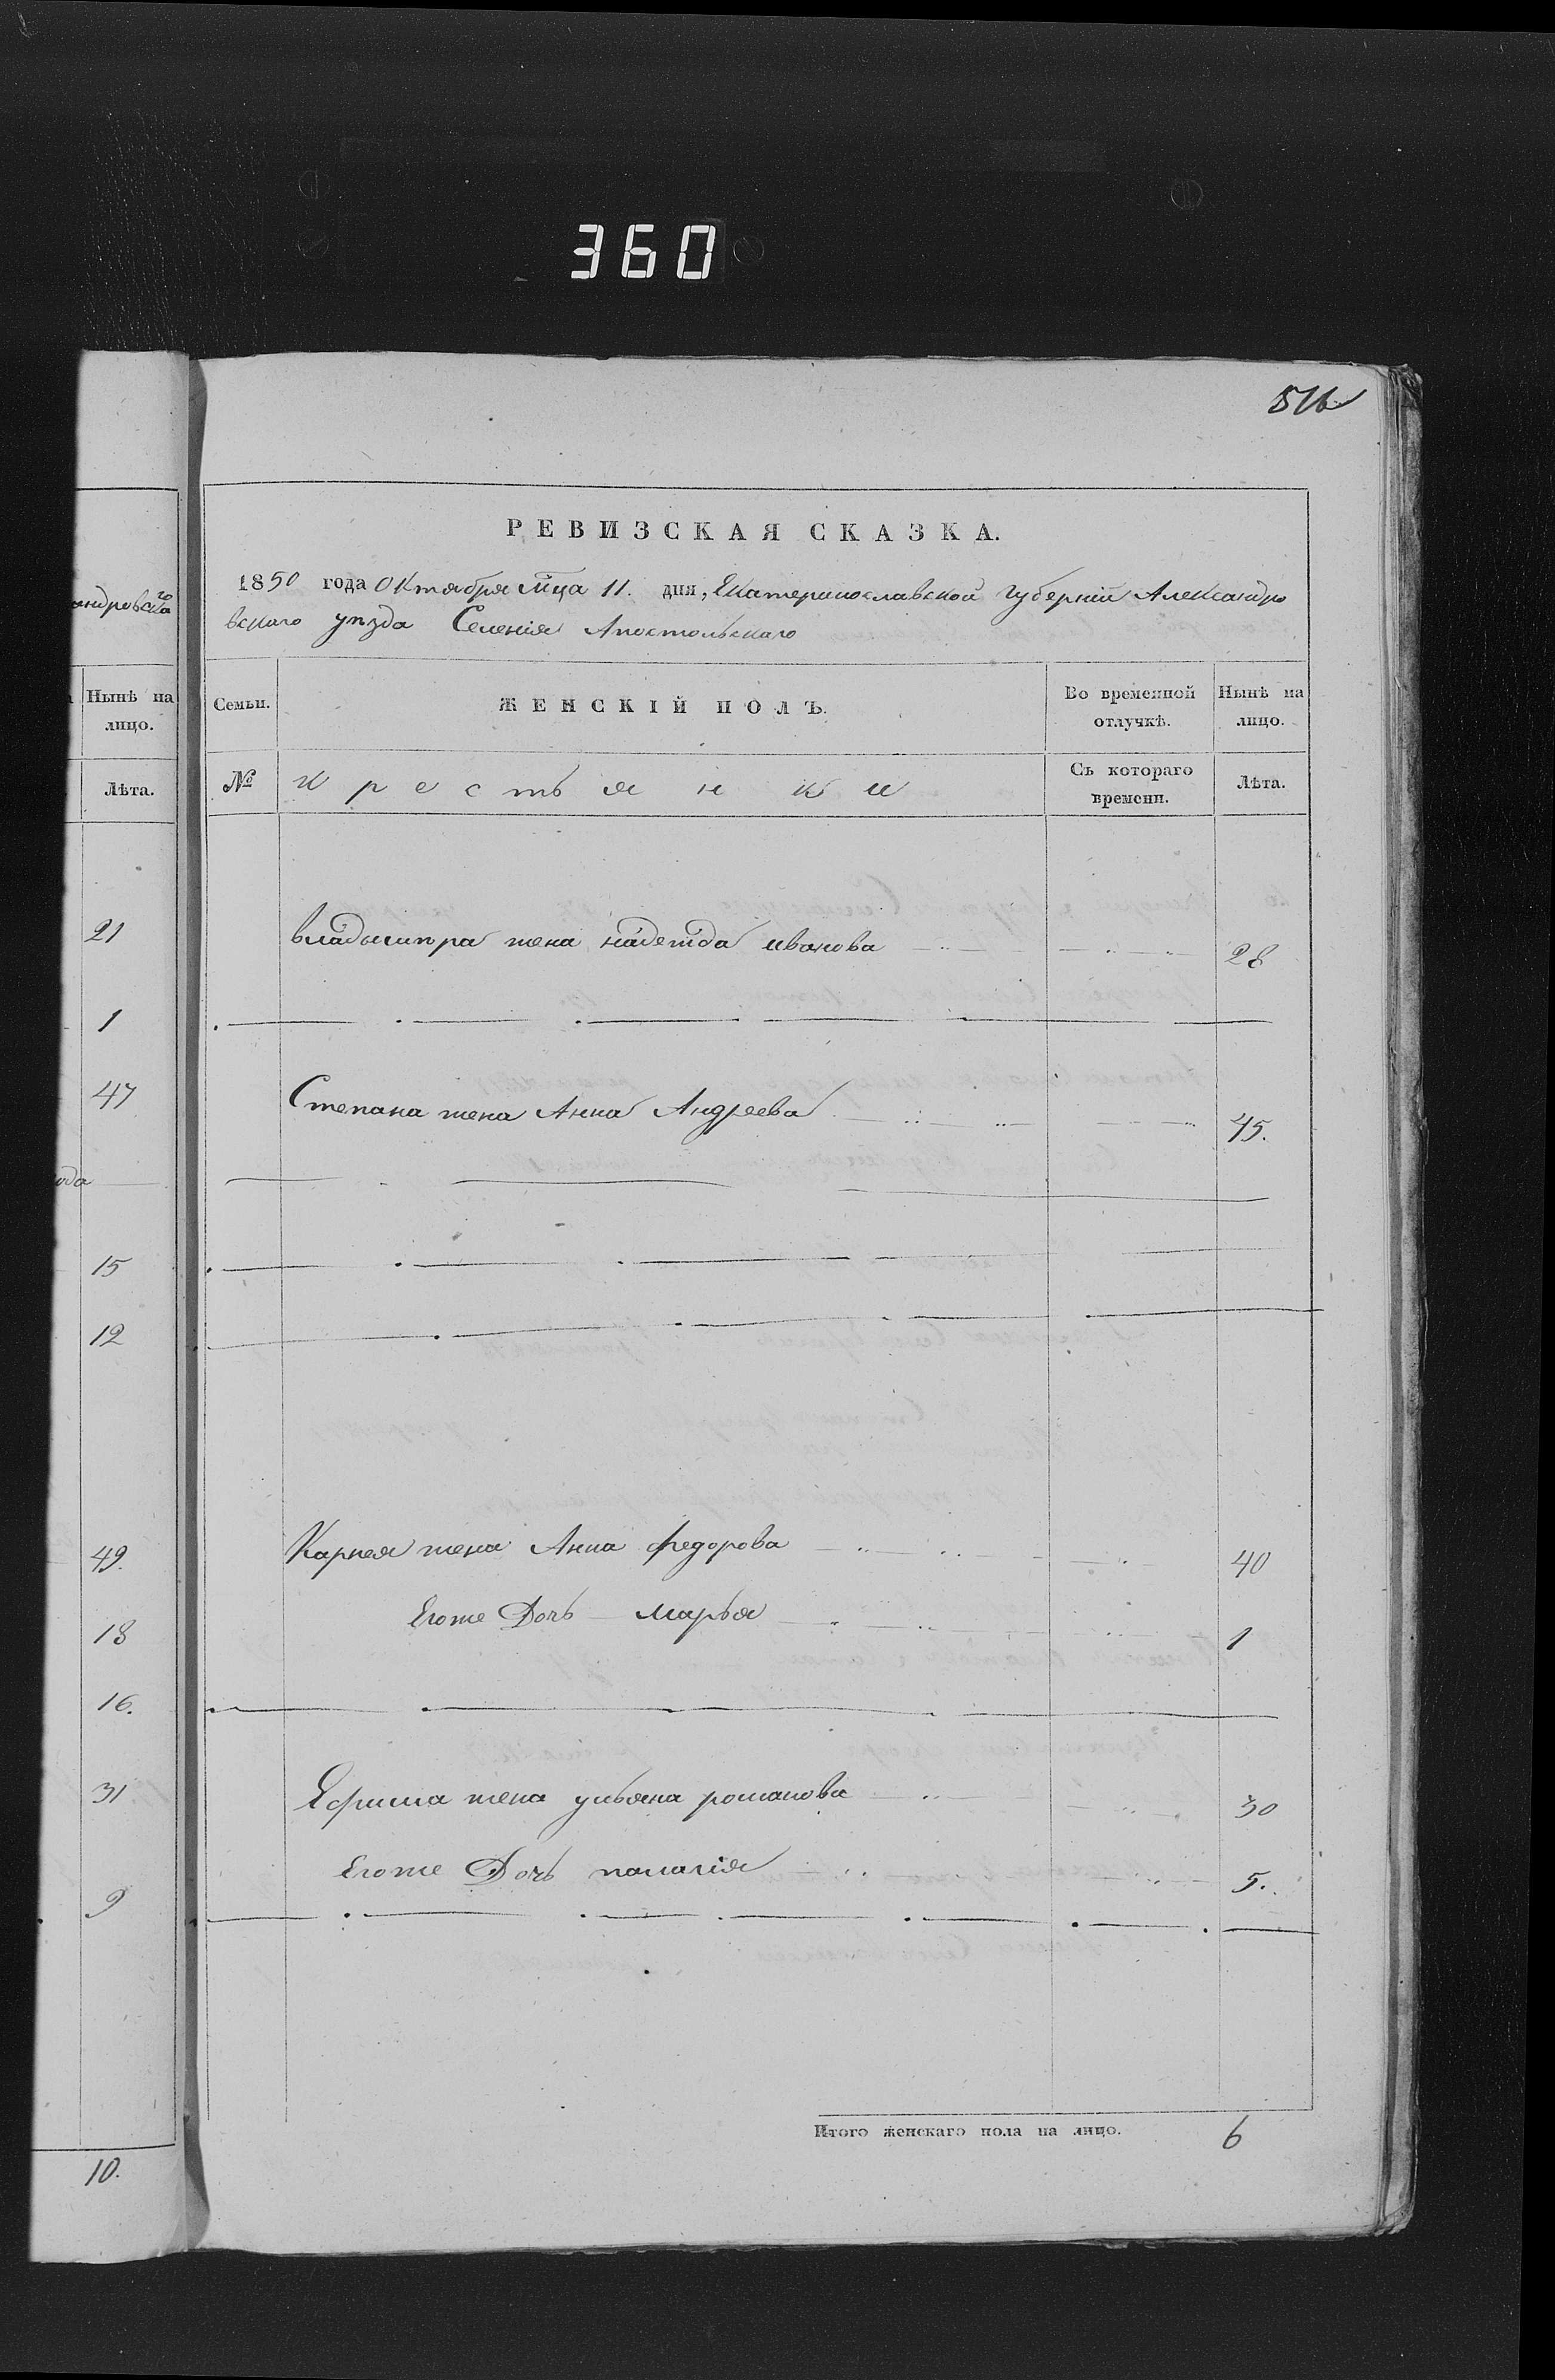 360
516
РЕВИЗСКАЯ СКАЗКА.
1850 года Октября мца 11. дня, Екатеринославской губернии Александро
вскаго уезда Селенія Апостольскаго
андровскаго
Нынѣ на лицо.
Лѣта.
21
1
47
ода
15
12
49.
18
16.
31
9
10.
Семьи.
ЖЕНСКІЙ ПОЛЪ.
Во временной отлучкѣ.
Нынѣ на лицо.
№
крестьянки
Съ котораго времени.
Лѣта.
владымира жена надежда иванова 28
Степана жена Анна Андреева 45.
Карнея жена Анна федорова 40
Егоже Дочь марья 1
Ефима жена ульяна романова 30
Егоже Дочь палагія 5.
Итого женскаго пола на лицо. 6